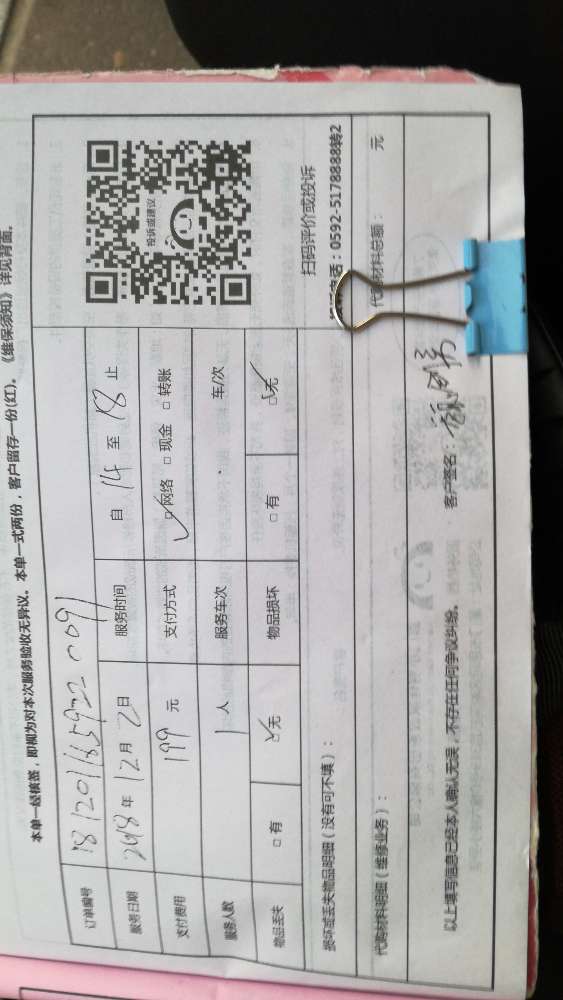 本单一经核签，即视为对本次服务验收无异议。本单一式两份，客户留存一份(红)。《维保须知》详见背面。
订单编号 181201165922 0091
服务日期 2018 年 12 月 2 日 服务时间 自 14 至 18 止
支付费用 199 元 支付方式 ☑ 网络 □ 现金 □ 转账
服务人数 1 人 服务车次 车/次
物品丢失 □ 有 ☑ 无 物品损坏 □ 有 ☑ 无
投诉或建议
扫码评价或投诉
电话：0592-5178888转2
损坏或丢失物品明细（没有可不填）：
代购材料明细（维修业务）： 代购材料总额： 元
以上填写信息已经本人确认无误，不存在任何争议纠纷。 客户签名：